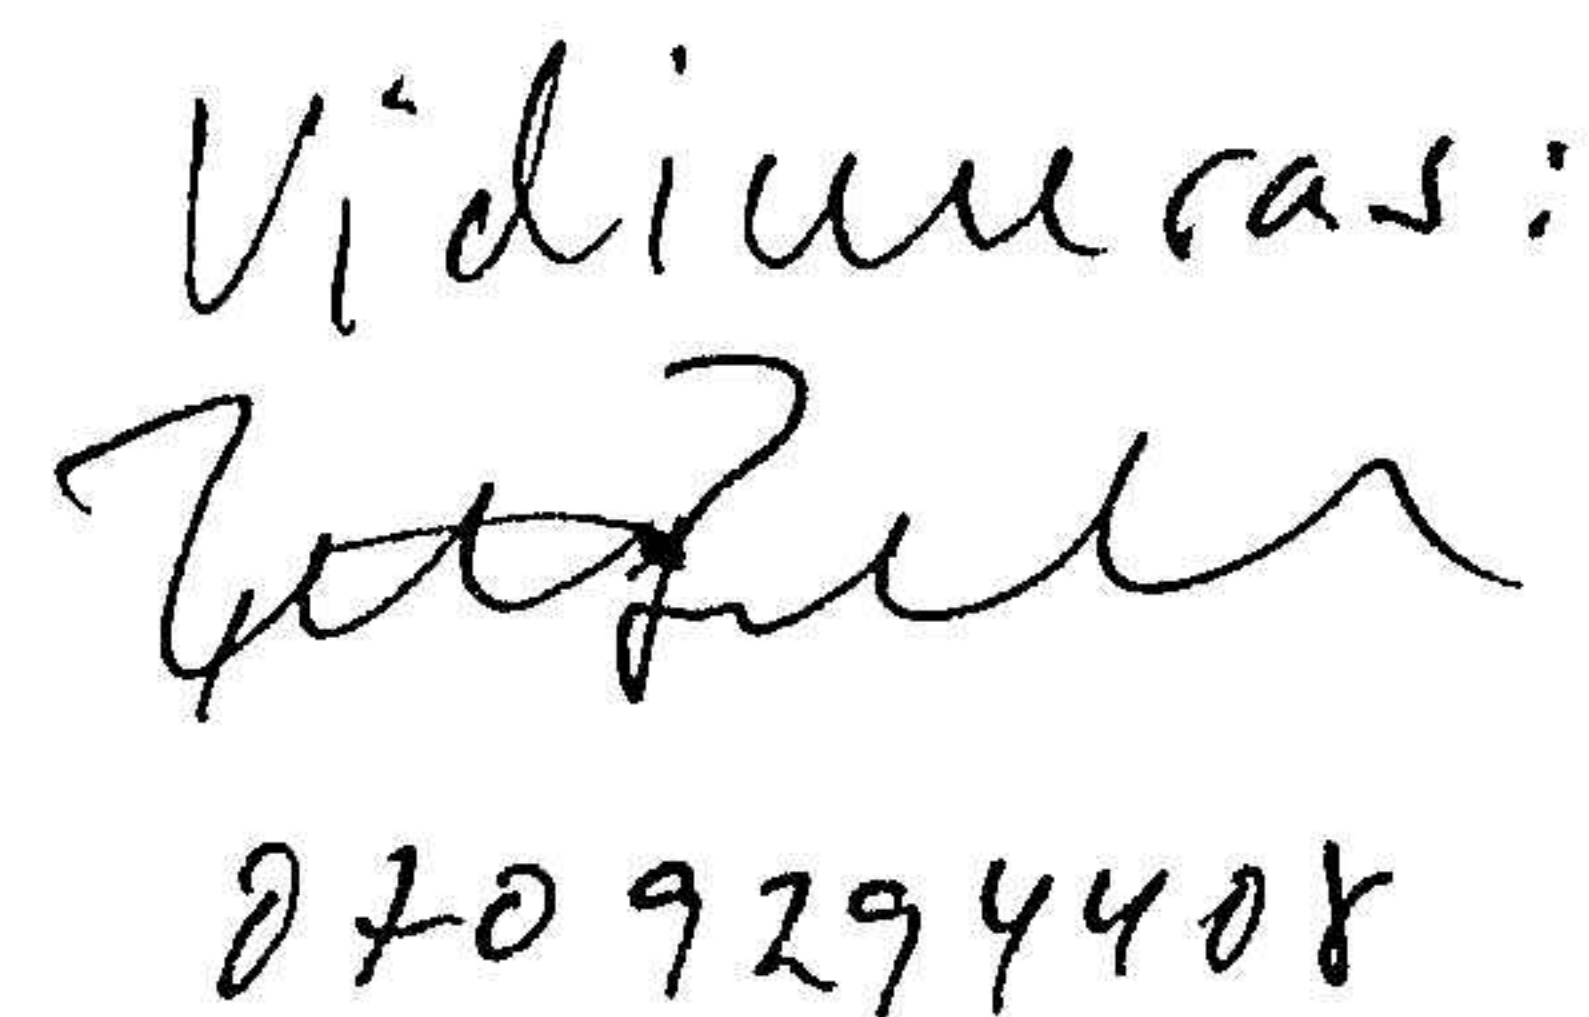 Vidimeras:
0709294408